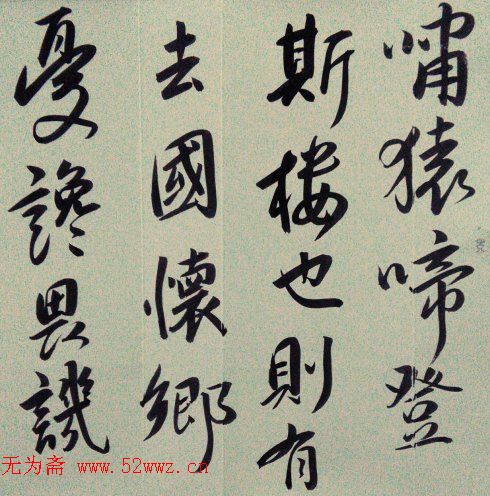 啸猿啼登
斯楼也则有
去國懷鄉
憂讒畏譏
无为斋 www.52wwz.cn